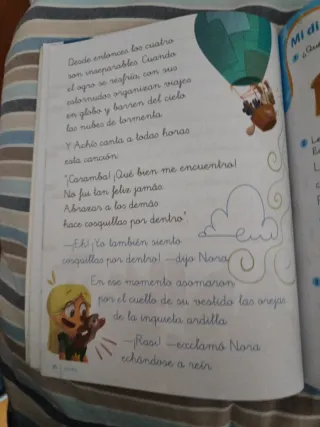 Desde entonces los cuatro
son inseparables. Cuando
el ogro se resfría, con sus
estornudos organizan viajes
en globo y barren del cielo
las nubes de tormenta.
Y Achís canta a todas horas
esta canción:
"¡Caramba! ¡Qué bien me encuentro!
No fui tan feliz jamás.
Abrazar a los demás
hace cosquillas por dentro".
—¡Eh! ¡Yo también siento
cosquillas por dentro! —dijo Nora.
En ese momento asomaron
por el cuello de su vestido las orejas
de la inquieta ardilla.
—¡Rasi! —exclamó Nora
echándose a reír.
Mi di